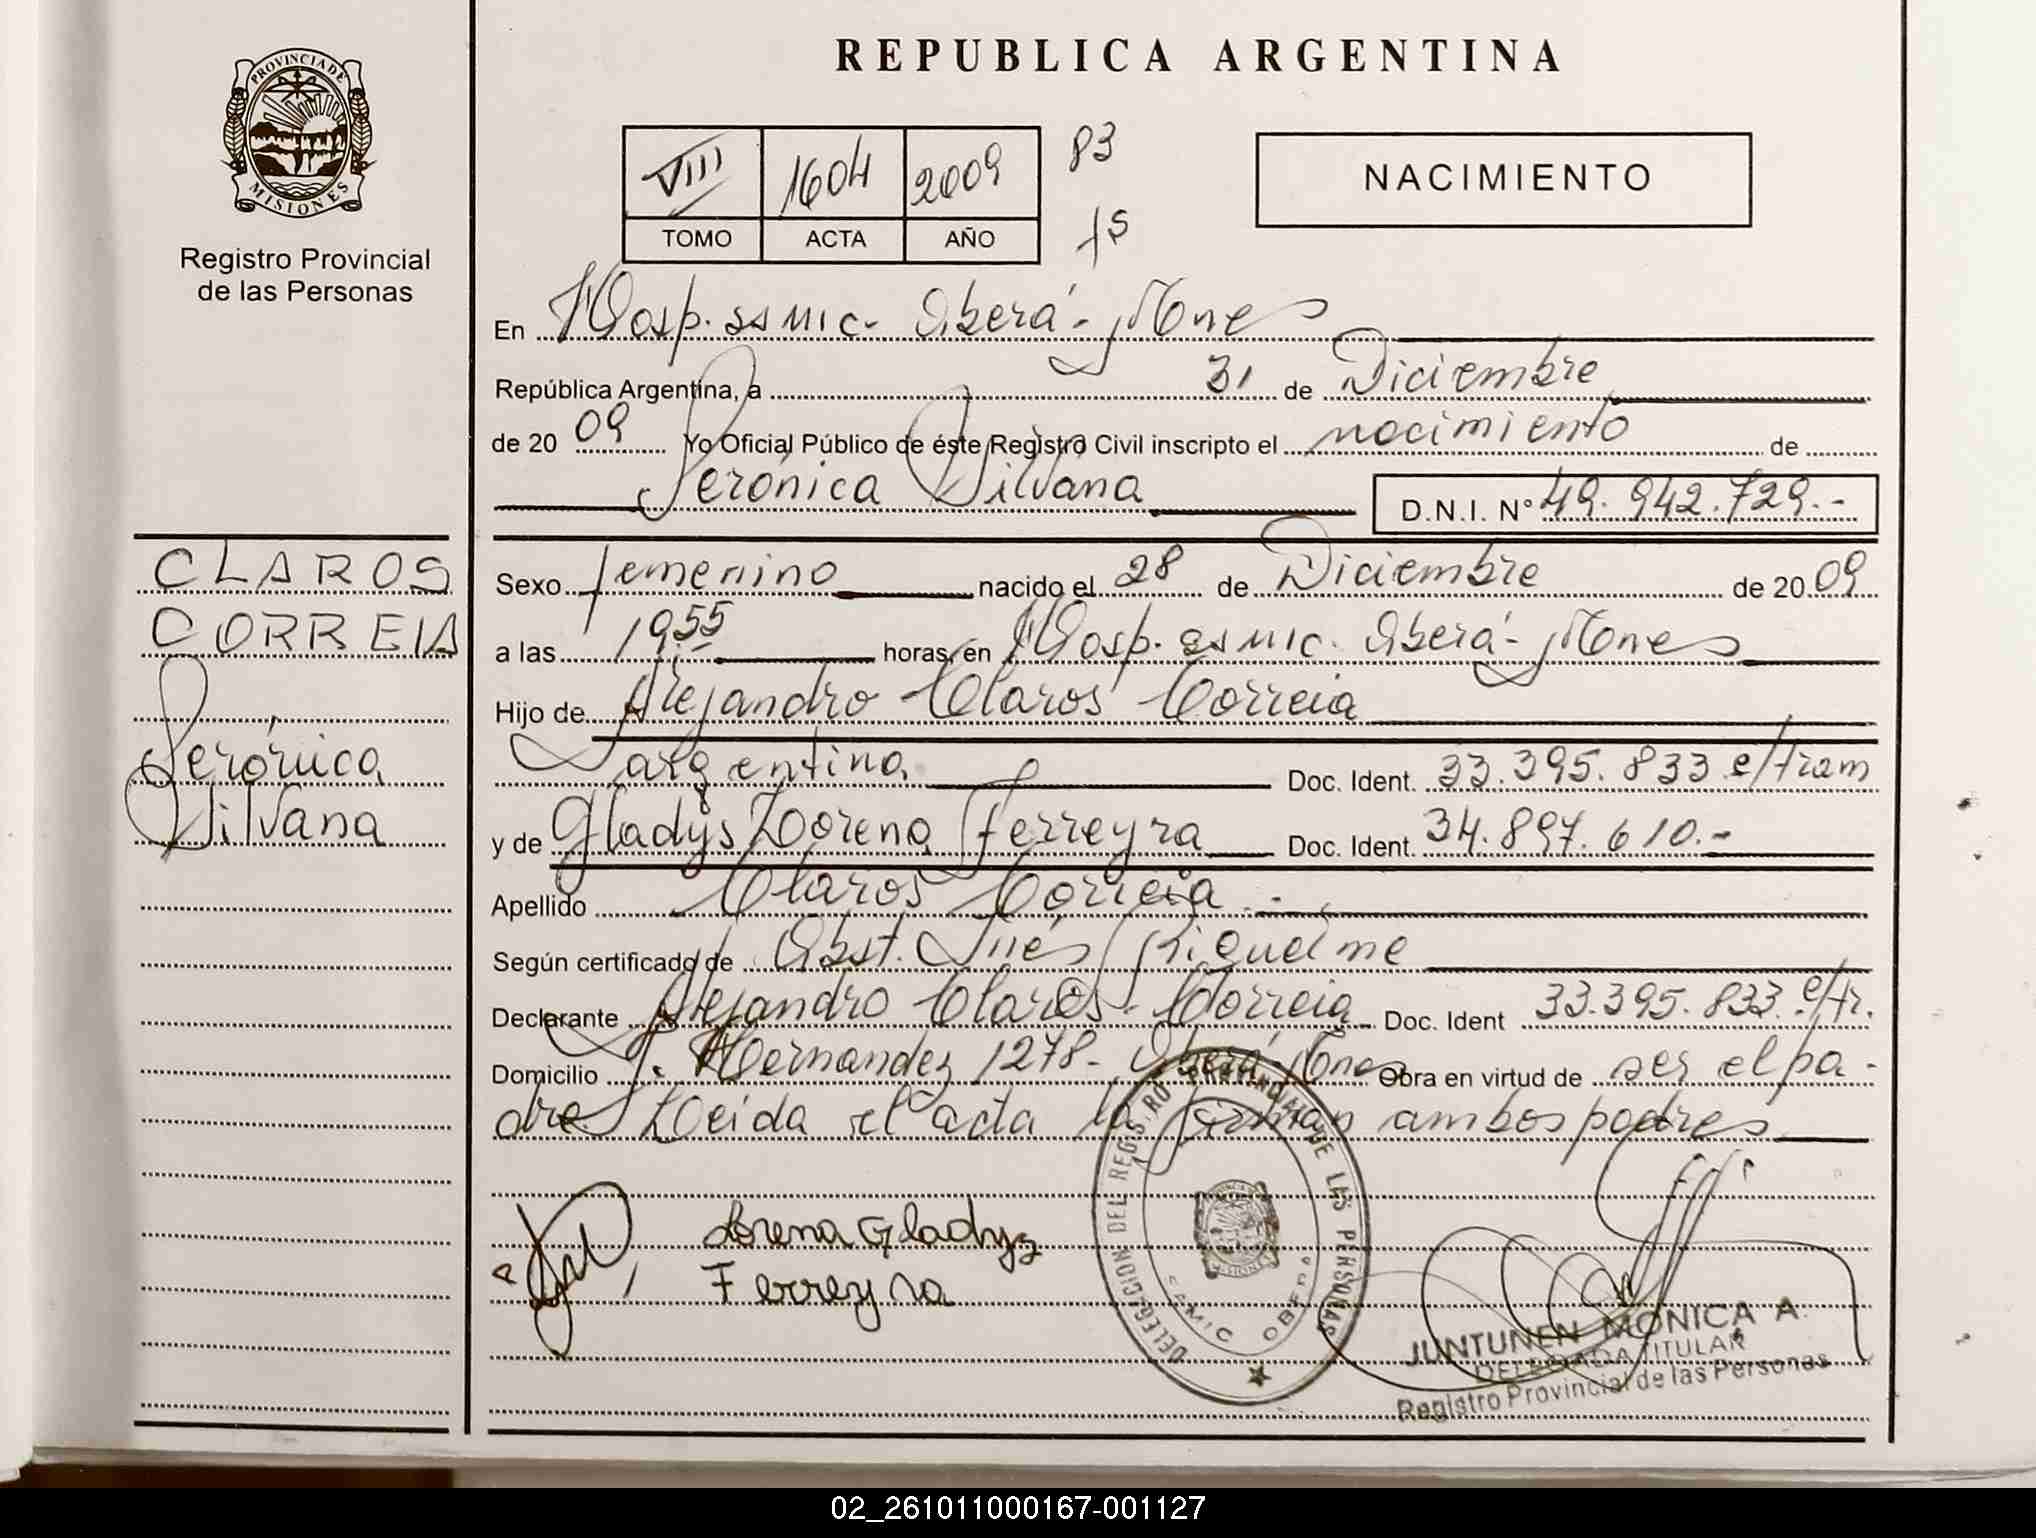 REPUBLICA ARGENTINA
PROVINCIA DE MISIONES
Registro Provincial
de las Personas
VIII 1604 2009 83
TOMO ACTA AÑO fs
NACIMIENTO
En Hosp. ssmic. Oberá - Mnes
República Argentina, a 31 de Diciembre
de 2009 Yo Oficial Público de éste Registro Civil inscripto el nacimiento de
Verónica Silvana D.N.I. N° 49.942.729.-
CLAROS
CORREIA
Verónica
Silvana
Sexo femenino nacido el 28 de Diciembre de 2009
a las 19.55 horas, en Hosp. ssmic. Oberá - Mnes
Hijo de Alejandro Claros Correia
argentina Doc. Ident. 33.395.833 e/tram
y de Gladys Lorena Ferreyra Doc. Ident. 34.897.610.-
Apellido Claros Correia.-
Según certificado de Obst. Inés Riquelme
Declarante Alejandro Claros Correia Doc. Ident 33.395.833 e/tr.
Domicilio J. Hernandez 1278 - Oberá Mnes Obra en virtud de ser el pa-
dre. Leida el acta la firman ambos padres
Lorena Gladys
Ferreyra
DELEGACION DEL REGISTRO PROVINCIAL DE LAS PERSONAS
SAMIC OBERA
JUNTUNEN MONICA A.
DELEGADA TITULAR
Registro Provincial de las Personas
02_261011000167-001127